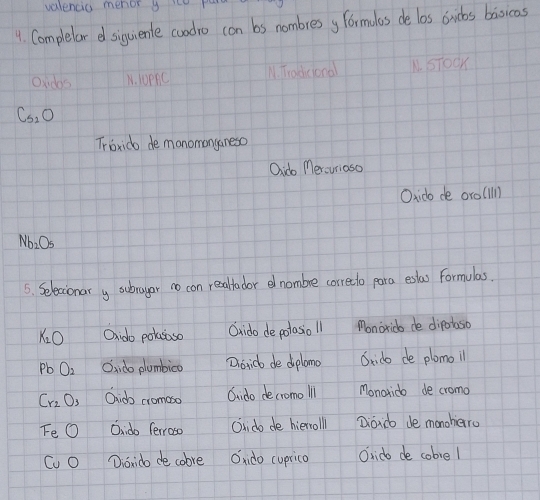 valencia menor y
4. Completar el siguiente cuadro con los nombres y fórmulas de los óxidos básicos
Oxidos N. IUPAC N. Tradicional N. STOCK
Cs₂O
Trióxido de monomanganeso
Oxido Mercurioso
Oxido de oro (III)
Nb₂O₅
5. Seleccionar y subrayar no con resaltador el nombre correcto para estas formulas.
K₂O Oxido potasoso Óxido de potasio II Monóxido de dipotasio
Pb O₂ Oxido plumbico Dióxido de diplomo Óxido de plomo II
Cr₂ O₃ Óxido cromoso Óxido de cromo III Monoxido de cromo
Fe O Óxido ferroso Óxido de hierro III Dióxido de monohierro
Cu O Dióxido de cobre Oxido cuprico Óxido de cobre I